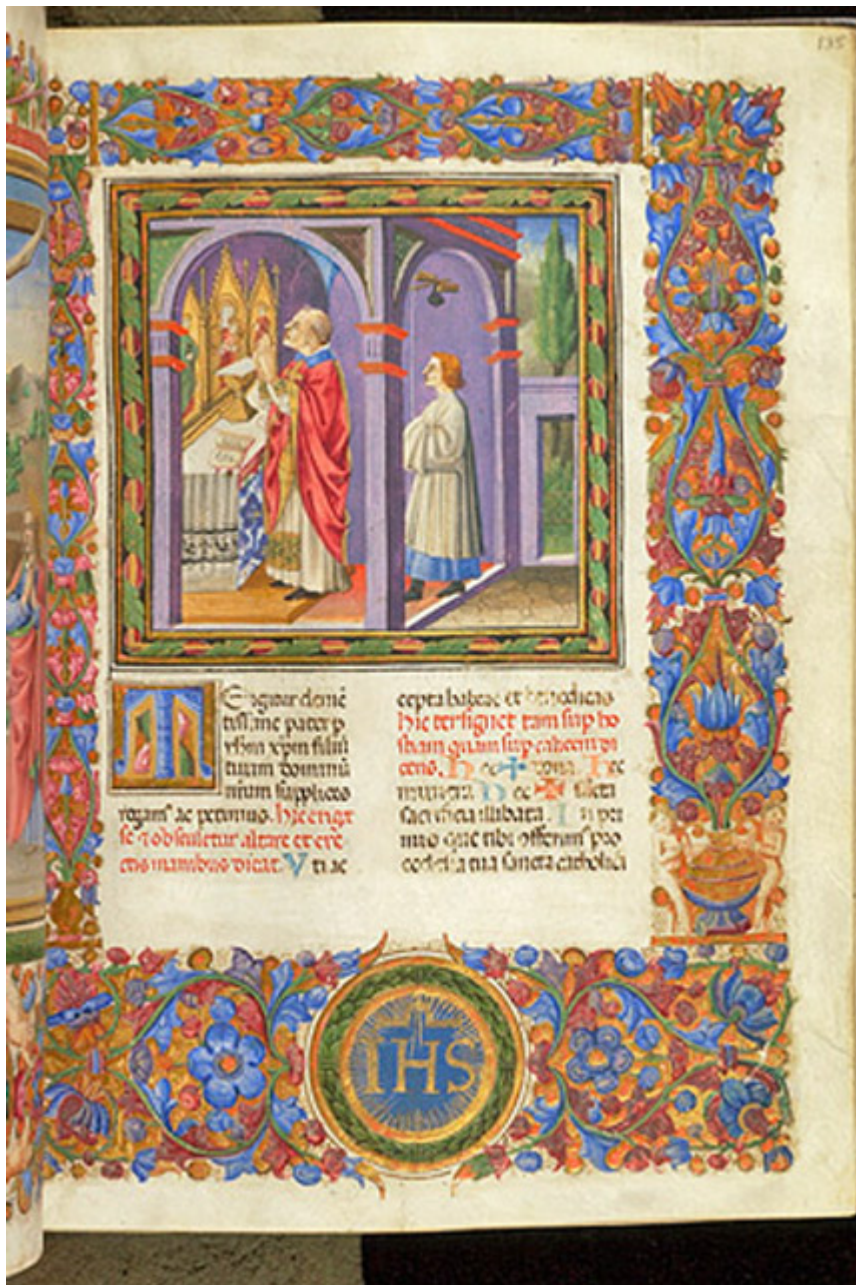 135
E igitur cleme
tissime pater p
yhm xpm filiu
tuum dominu
nrum supplices
rogam ac petimus. hic erigit
se & obsculetur altare et ere
ctis manibus dicat. V ti ac
cepta habeas et benedicas
hic ter signet tam sup ho
stiam quam sup calicem di
cens. H ec + dona. H ec
munera H ec + sancta
sacrificia illibata. I n pri
mis que tibi offerim pro
ecclesia tua sancta catholica
IHS